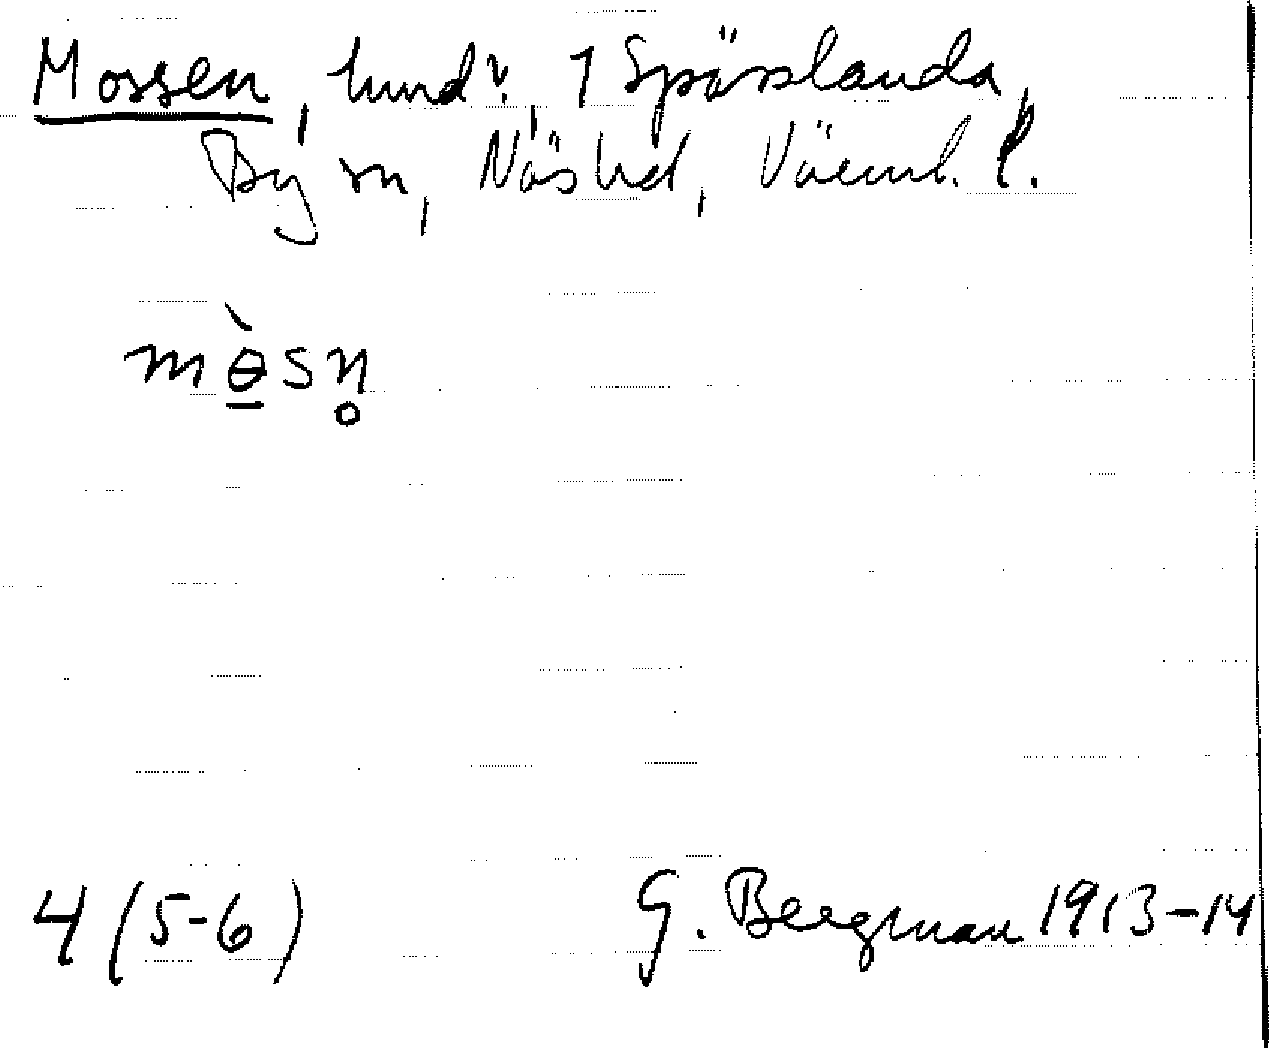 Mossen, hmd?, 1 Spässlanda,
By sn, Näs hd, Värml. l.
mɵ̠̀sn̥
4 (5-6) G. Bergman 1913-14